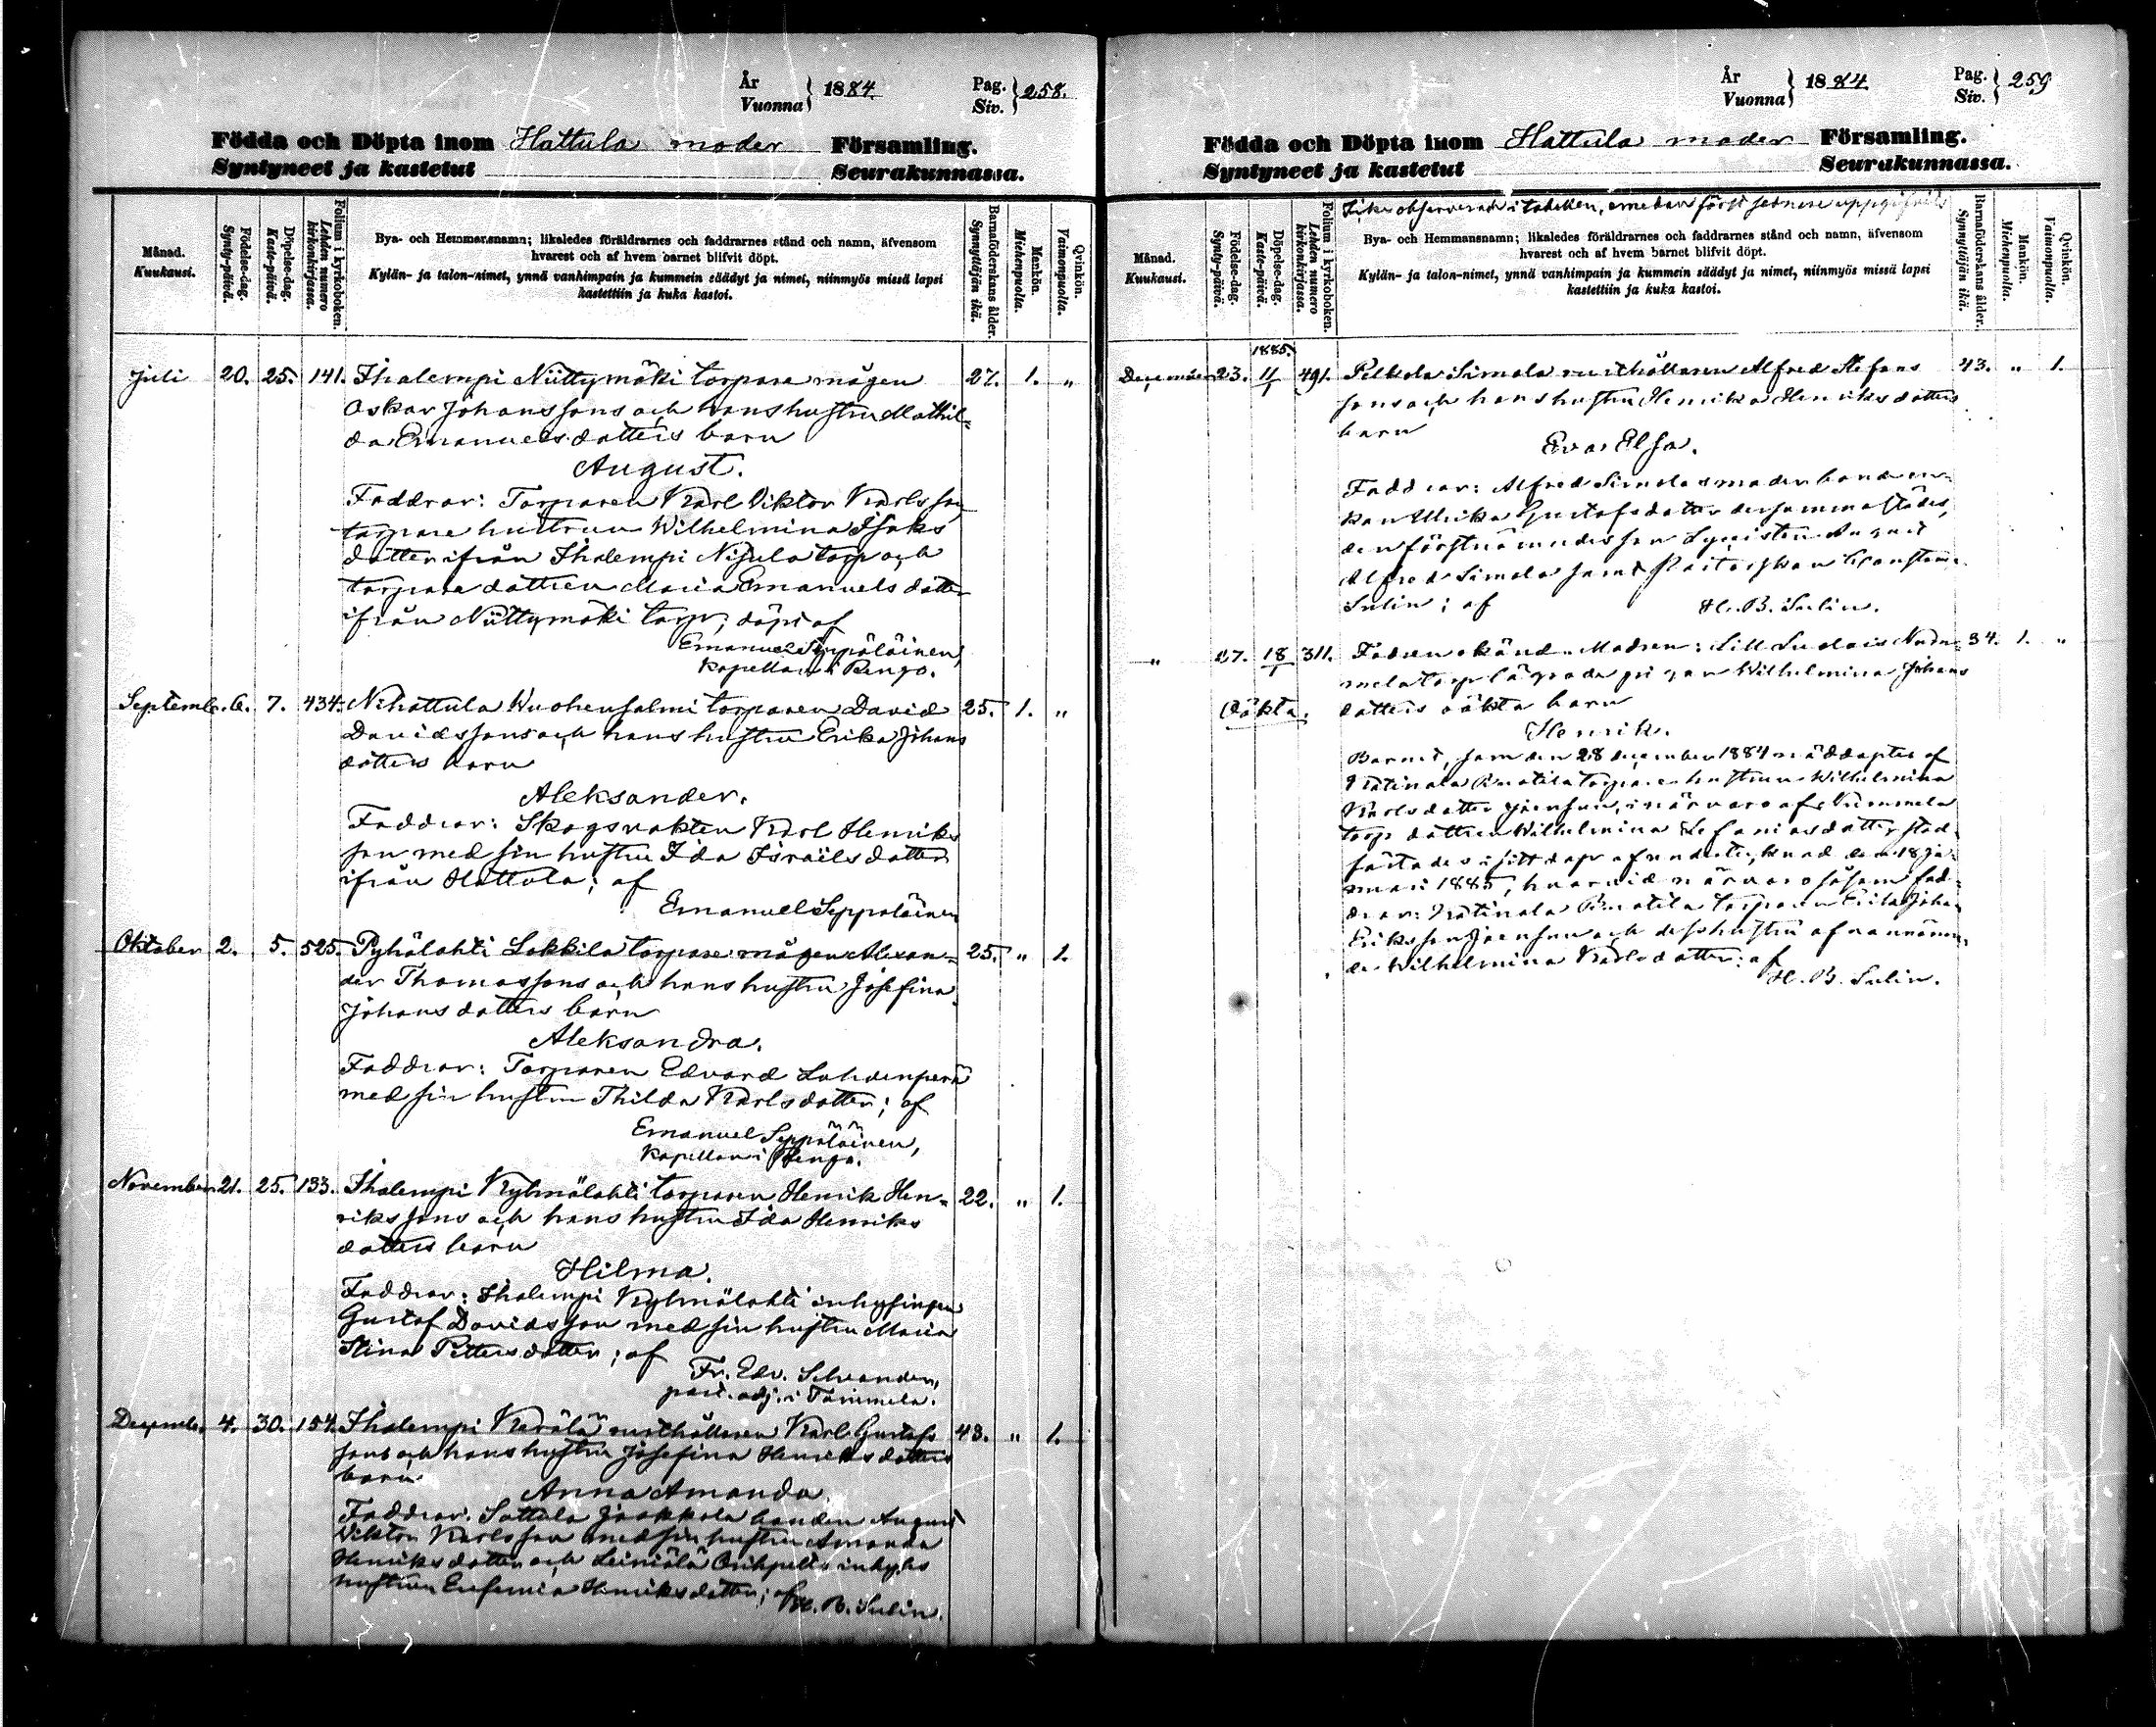 År
Vuonna } 1884.
Pag.
Siv. } 258.
Födda och Döpta inom Hattula moder Församling.
Syntyneet ja kastetut Seurakunnassa.
Månad.
Kuukausi.
Födelse-dag.
Synty-päivä.
Döpelse-dag.
Kaste-päivä.
Folium i kyrkoboken.
Lehden numero
kirkonkirjassa.
Bya- och Hemmansnamn; likaledes föräldrarnes och faddrarnes stånd och namn, äfvensom
hvarest och af hvem barnet blifvit döpt.
Kylän- ja talon-nimet, ynnä vanhimpain ja kummein säädyt ja nimet, niinmyös missä lapsi
kastettiin ja kuka kastoi.
Barnaföderskans ålder.
Synnyttäjän ikä.
Mankön.
Miehenpuolta.
Qvinkön.
Vaimonpuolta.
Juli 20. 25. 141. Ihalempi Niittymäki torpare mågen 27. 1. "
Oskar Johanssons och hans hustru Mathil=
da Emanuels dotters barn
August.
Faddrar: Torparen Karl Viktor Karlsson
torpare hustrun Wilhelmina Isaks
dotter ifrån Ihalempi Nisula torp och
torpare dottren Maria Emanuels dotter
ifrån Niittymäki torp; döpt af
Emanuel Seppäläinen,
Kapellan i Rengo.
Septemb. 6. 7. 434. Nihattula Wuohensalmi torparen David 25. 1. "
Davidssons och hans hustru Erika Johans
dotters barn
Aleksander.
Faddrar: Skogsvakten Karl Henriks
son med sin hustru Ida Israels dotter
ifrån Hattula; af
Emanuel Seppäläinen
Oktober 2. 5. 525. Pyhälahti Lakkila torpare mågen Alexan= 25. " 1.
der Thomassons och hans hustru Josefina
Johans dotters barn
Aleksandra.
Faddrar: Torparen Edvard Lahdenperä
med sin hustru Thilda Karlsdotter; af
Emanuel Seppäläinen,
Kapellan i Rengo.
November 21. 25. 133. Ihalempi Kylmälahti torparen Henrik Hen= 22. " 1.
riks sons och hans hustru Ida Henriks
dotters barn
Hilma.
Faddrar: Ihalempi Kylmälahti inhysingen
Gustaf Davidsson med sin hustru Maria
Stina Petters dotter; af
Fr. Edv. Selander,
past. adj. i Tammela.
Decemb. 4. 30. 154. Ihalempi Kerälä rusthållaren Karl Gustafs 43. " 1.
sons och hans hustru Josefina Henriks dotters
barn
Anna Amanda
Faddrar: Sattula Jaakkola bonden August
Viktor Karlsson med sin hustru Amanda
Henriks dotter och Leiniälä inhyses
hustrun Eufemia Henriksdotter; af H. B. Sulin.
År
Vuonna } 1884
Pag.
Siv. } 259
Födda och Döpta inom Hattula moder Församling.
Syntyneet ja kastetut Seurakunnassa.
observerade i tabellen, emedan först sednare uppgifvits
Månad.
Kuukausi.
Födelse-dag.
Synty-päivä.
Döpelse-dag.
Kaste-päivä.
Folium i kyrkoboken.
Lehden numero
kirkonkirjassa.
Bya- och Hemmansnamn; likaledes föräldrarnes och faddrarnes stånd och namn, äfvensom
hvarest och af hvem barnet blifvit döpt.
Kylän- ja talon-nimet, ynnä vanhimpain ja kummein säädyt ja nimet, niinmyös missä lapsi
kastettiin ja kuka kastoi.
Barnaföderskans ålder.
Synnyttäjän ikä.
Mankön.
Miehenpuolta.
Qvinkön.
Vaimonpuolta.
1885.
December 23. 11/1 491. Pelkola Simola rusthållaren Alfred Stefans 43. " 1.
sons och hans hustru Henrika Henriksdotters
barn
Eva Elsa.
Faddrar: Alfred Simolas moder bond en=
kan Ulrika Gustafsdotter dersammastädes,
den förstnämndes son Lyceisten August
Alfred Simola samt Konstantin
Sulin; af H. B. Sulin.
" 27. 18/1 311. Fadren okänd. Modren: Lill Num= 34. 1. "
mela torp lägrade pigan Wilhelmina Johans
Oäkta. dotters oäkta barn
Henrik.
Barnet, som den 28 december 1884 nöddöptes af
torpare hustrun Wilhelmina
Karlsdotter Joensuu, i närvaro af Nummela
torp dottren Wilhelmina dotter, stad=
fästades i sitt dop af undertecknad den 18 ja=
nuari 1885, hvarvid närvoro såsom fad=
drar: torparen Erik Johan
Eriksson Joensuu och dess hustru ofvannämn=
de Wilhelmina Karlsdotter; af
H. B. Sulin.